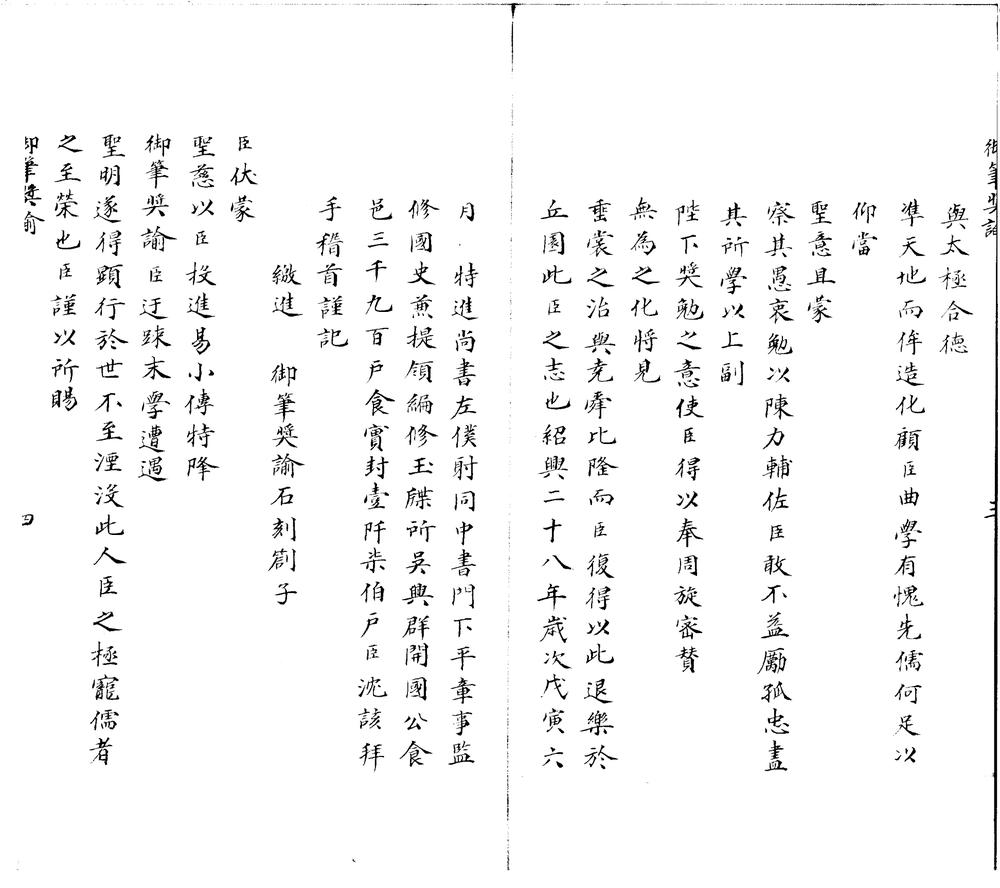 御筆奬諭
三
與太極合德
準天地而侔造化顧臣曲學有愧先儒何足以
仰當
聖意且蒙
察其愚衷勉以陳力輔佐臣敢不益厲孤忠盡
其所學以上副
陛下奬勉之意使臣得以奉周旋密賛
無為之化將見
垂裳之治與堯舜比隆而臣復得以此退樂於
丘園此臣之志也紹興二十八年歲次戊寅六
月特進尚書左僕射同中書門下平章事監
修國史兼提領編修玉牒所吳興群開國公食
邑三千九百戶食實封壹阡柒伯戶臣沈該拜
手稽首謹記
繳進 御筆奬諭石刻劄子
臣伏蒙
聖慈以臣投進易小傳特降
御筆奬諭臣迂踈末學遭遇
聖明遂得顯行於世不至湮沒此人臣之極寵儒者
之至榮也臣謹以所賜
御筆奬諭
四